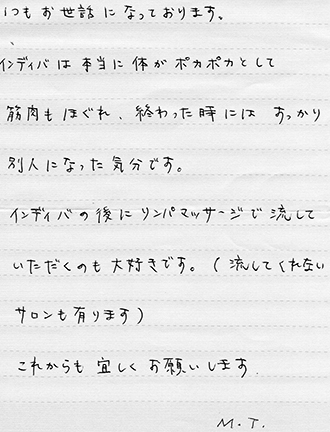 いつもお世話になっております。
インディバは本当に体がポカポカとして
筋肉もほぐれ、終わった時には すっかり
別人になった気分です。
インディバの後にリンパマッサージで流して
いただくのも大好きです。(流してくれない
サロンも有ります)
これからも 宜しくお願いします.
M.T.